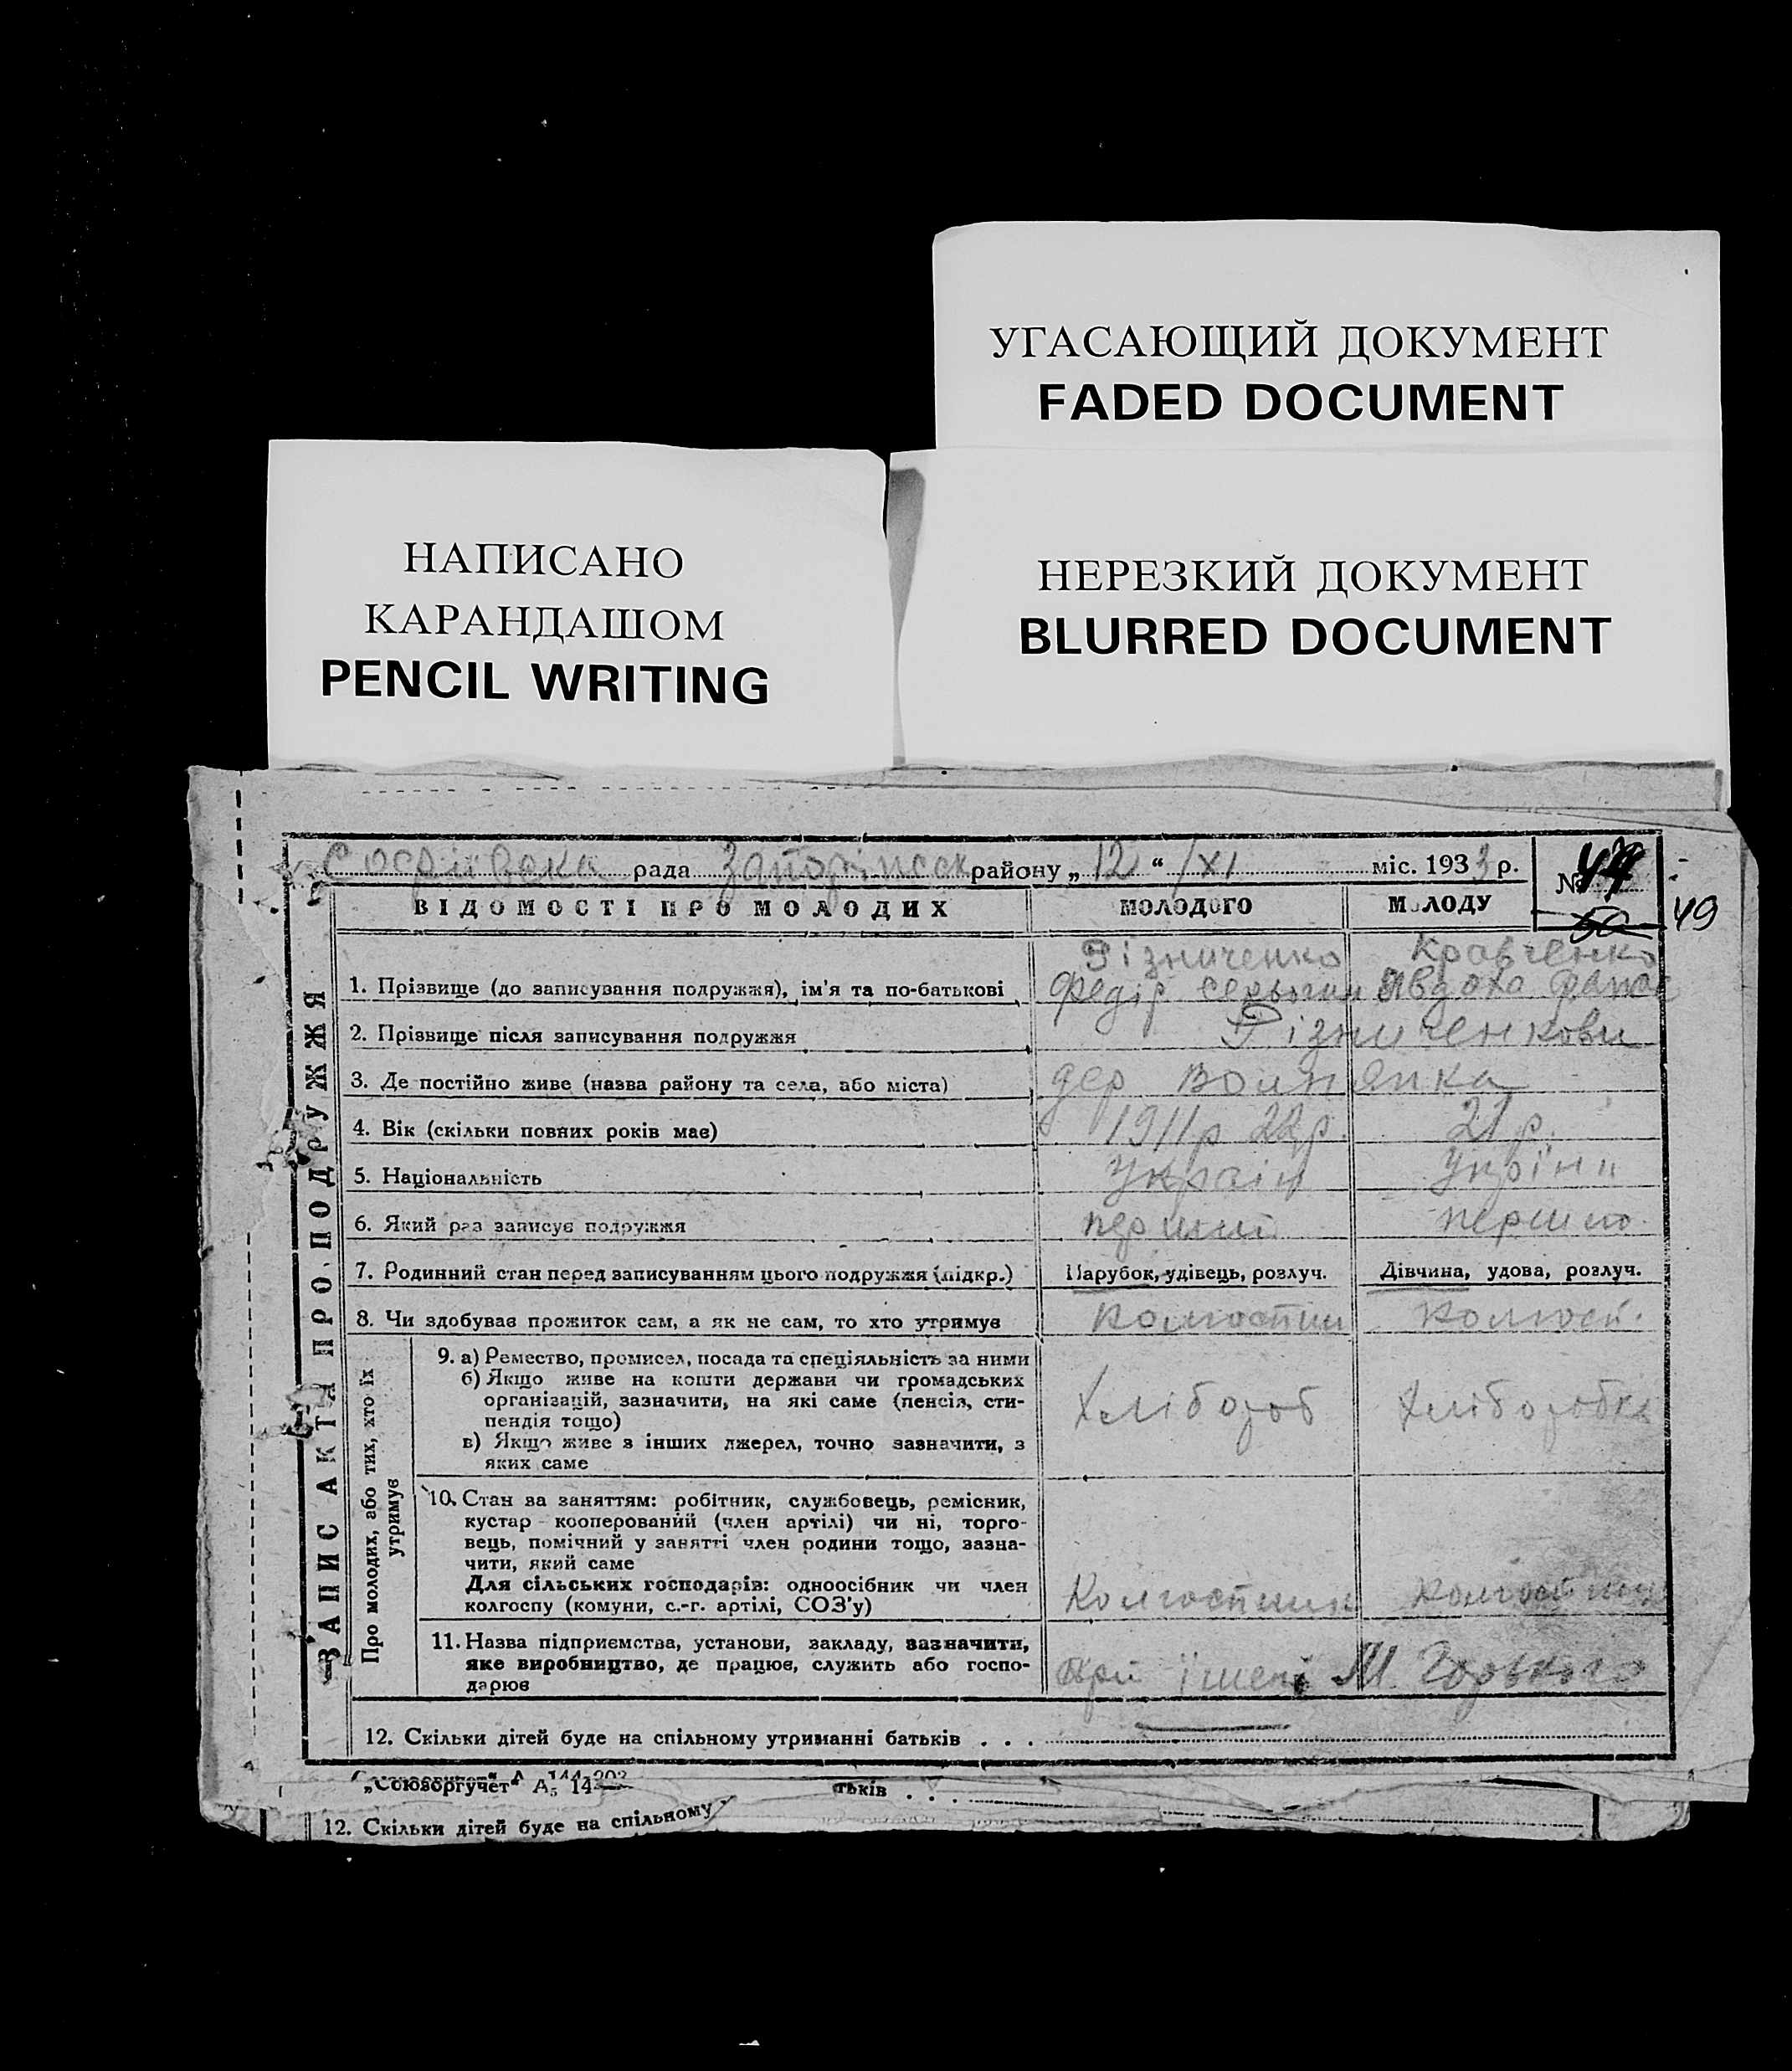 УГАСАЮЩИЙ ДОКУМЕНТ
FADED DOCUMENT
НАПИСАНО
КАРАНДАШОМ
PENCIL WRITING
НЕРЕЗКИЙ ДОКУМЕНТ
BLURRED DOCUMENT
ЗАПИС АКТА ПРО ПОДРУЖЖЯ
Софіївска рада Запоріпсск району „12“ /XI міс. 1933 р.
№ 47
50 49
ВІДОМОСТІ ПРО МОЛОДИХ МОЛОДОГО МОЛОДУ
Різниченко Кравченко
1. Прізвище (до записування подружжя), ім’я та по-батькові Федір Явдоха Фанас
2. Прізвище після записування подружжя Різниченкови
3. Де постійно живе (назва району та села, або міста) дер Вольнянка
4. Вік (скільки повних років має) 1911р 22р. 21 р.
5. Національність Україн Укрінн
6. Який раз записує подружжя перший першио.
7. Родинний стан перед записуванням цього подружжя (підкр.) Парубок, удівець, розлуч. Дівчина, удова, розлуч.
8. Чи здобуває прожиток сам, а як не сам, то хто утримує Колгостни Колгост.
Про молодих, або тих, хто їх
утримує
9. а) Ремество, промисел, посада та спеціяльність за ними
б) Якщо живе на кошти держави чи громадських
організацій, зазначити, на які саме (пенсія, сти-
пендія тощо)
Хлібороб Хліборобка
в) Якщо живе з інших джерел, точно зазначити, з
яких саме
10. Стан за заняттям: робітник, службовець, ремісник,
кустар кооперований (член артілі) чи ні, торго-
вець, помічний у занятті член родини тощо, зазна-
чити, який саме
Для сільських господарів: одноосібник чи член
колгоспу (комуни, с.-г. артілі, СОЗ’у) Колгостник Колгостниц
11. Назва підприємства, установи, закладу, зазначити,
яке виробництво, де працює, служить або госпо-
дарює
імені М. Горького
12. Скільки дітей буде на спільному утриманні батьків . . .
„Союзоргучет“ А₅ 14
тьків . . .
12. Скільки дітей буде на спільному